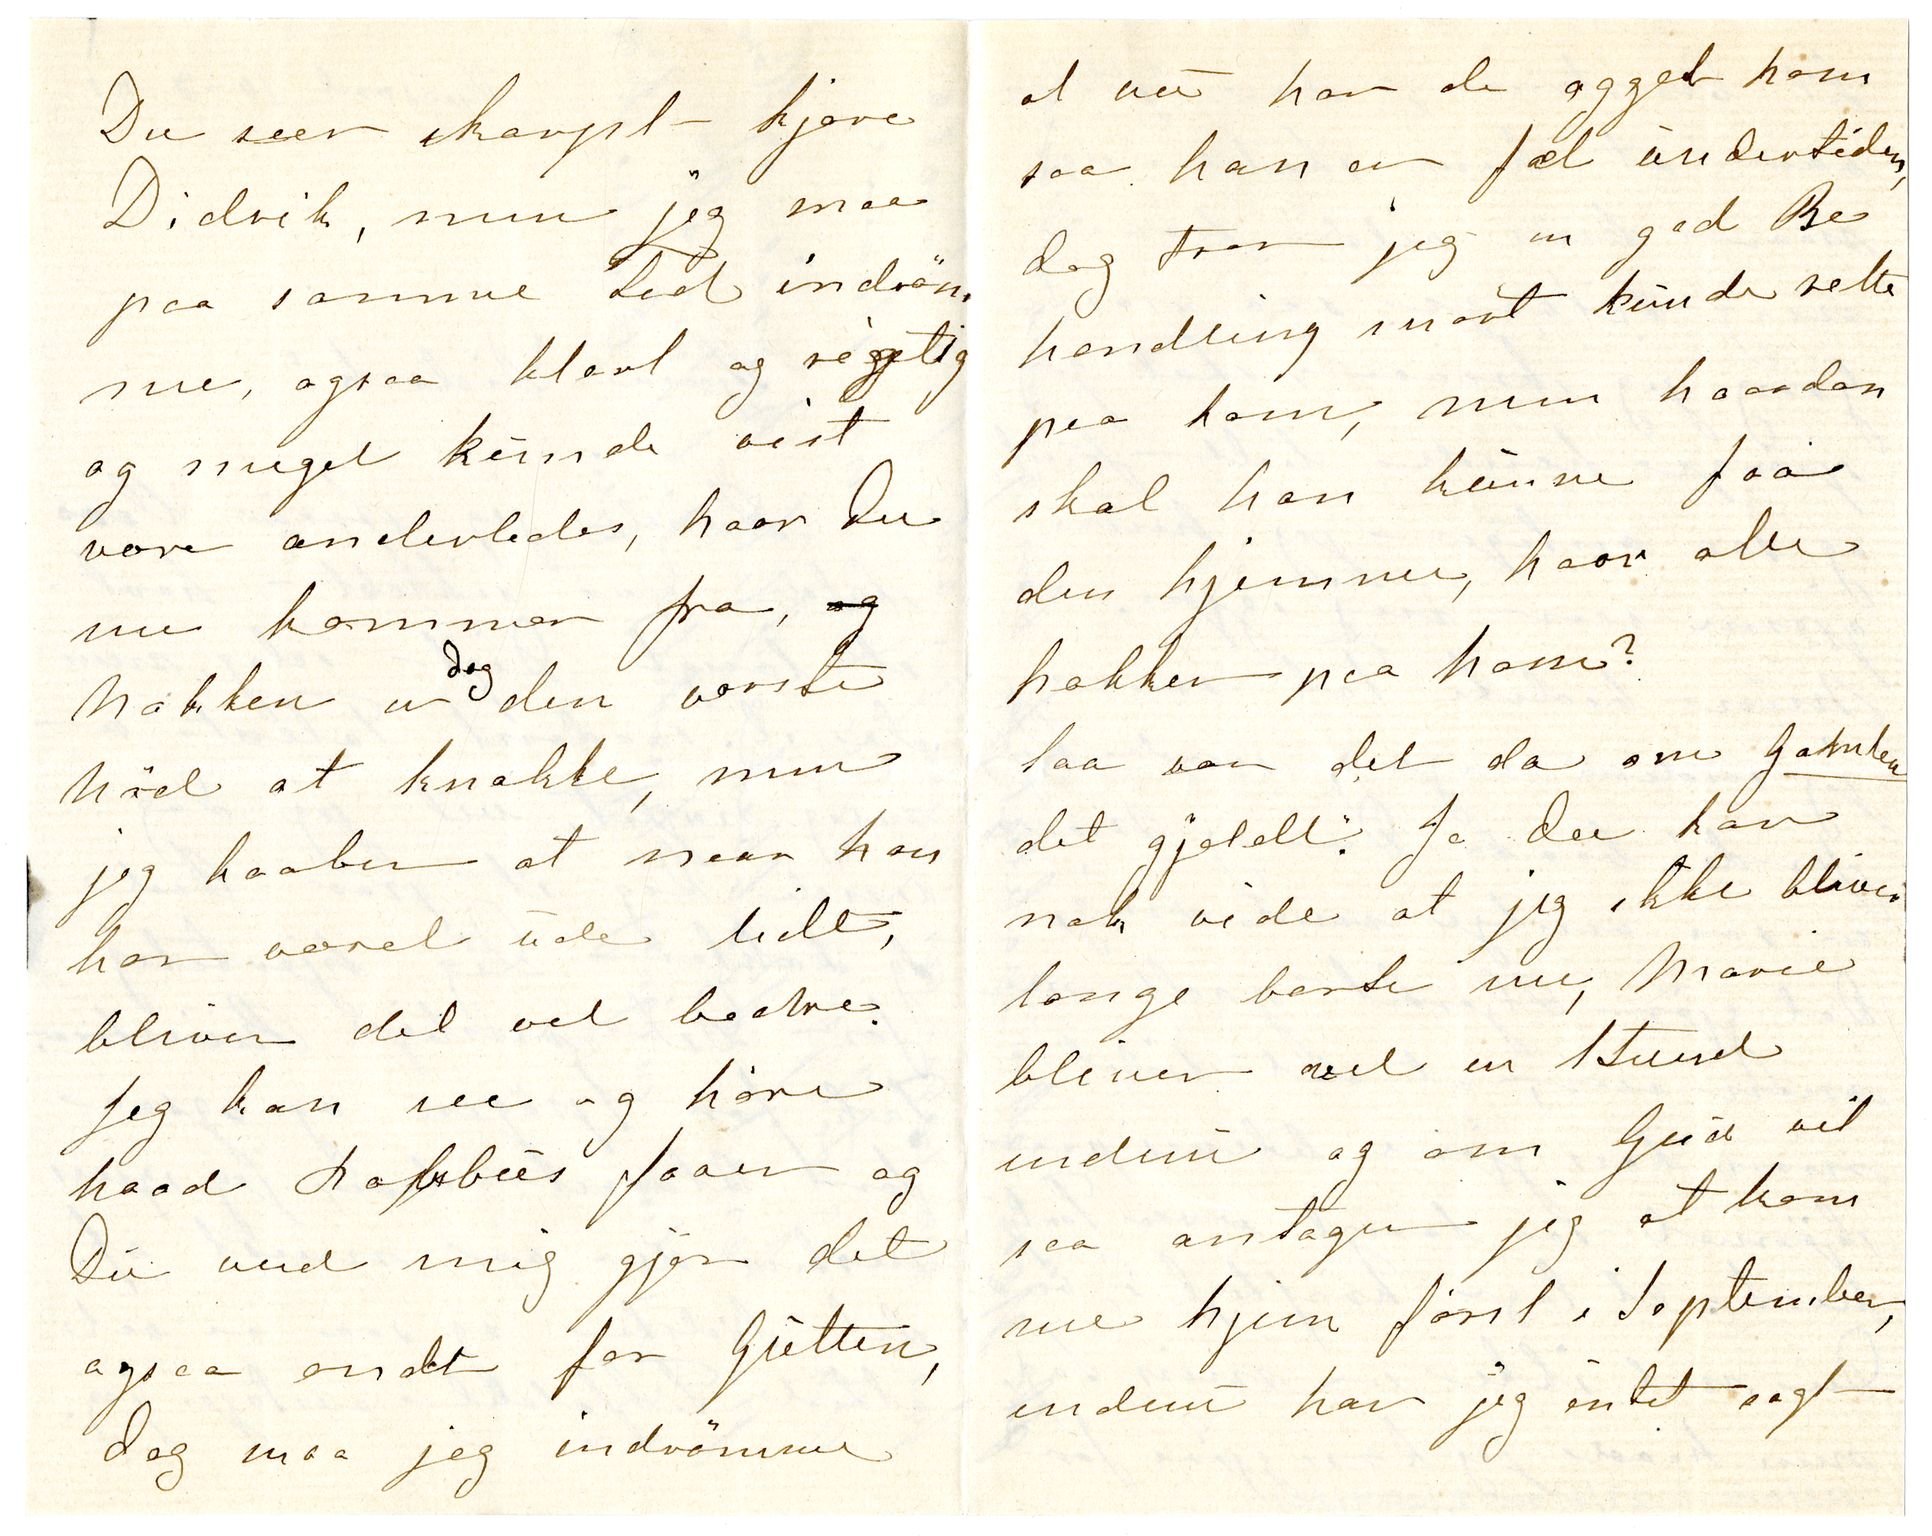 Du seer skarpt kjære
Didrik, men jeg maa
paa samme Tid indröm
me, ogsaa klart og rigtig
og meget künde vist
være anderledes, hvor Du
nu kommer fra, og
Nakken er dog den værste
Nöd at knække, men
jeg haaber at naar han
har været üde lidt,
bliver det vel bedre.
Jeg kan see og höre
hvad Rafsbüs faaer og
Dü med mig gjör det
ogsaa ondt for Gütten,
dog maa jeg indrömme
at nü har de ægget ham
saa han er fæl ündertiden,
dog troer jeg en god Be
handling snart künde rette
paa ham, men hvordan
skal han künne faa
den hjemme, hvor alle
hakker paa ham?
Saa var det da om Gamlen
det gjeldt. Ja Du kan
nok vide at jeg ikke bliver
længe borte nu, Marie
bliver vel en Stund
endnü og om Güd vil
saa antager jeg at kom
me hjem först i September,
endnü har jeg intet sagt